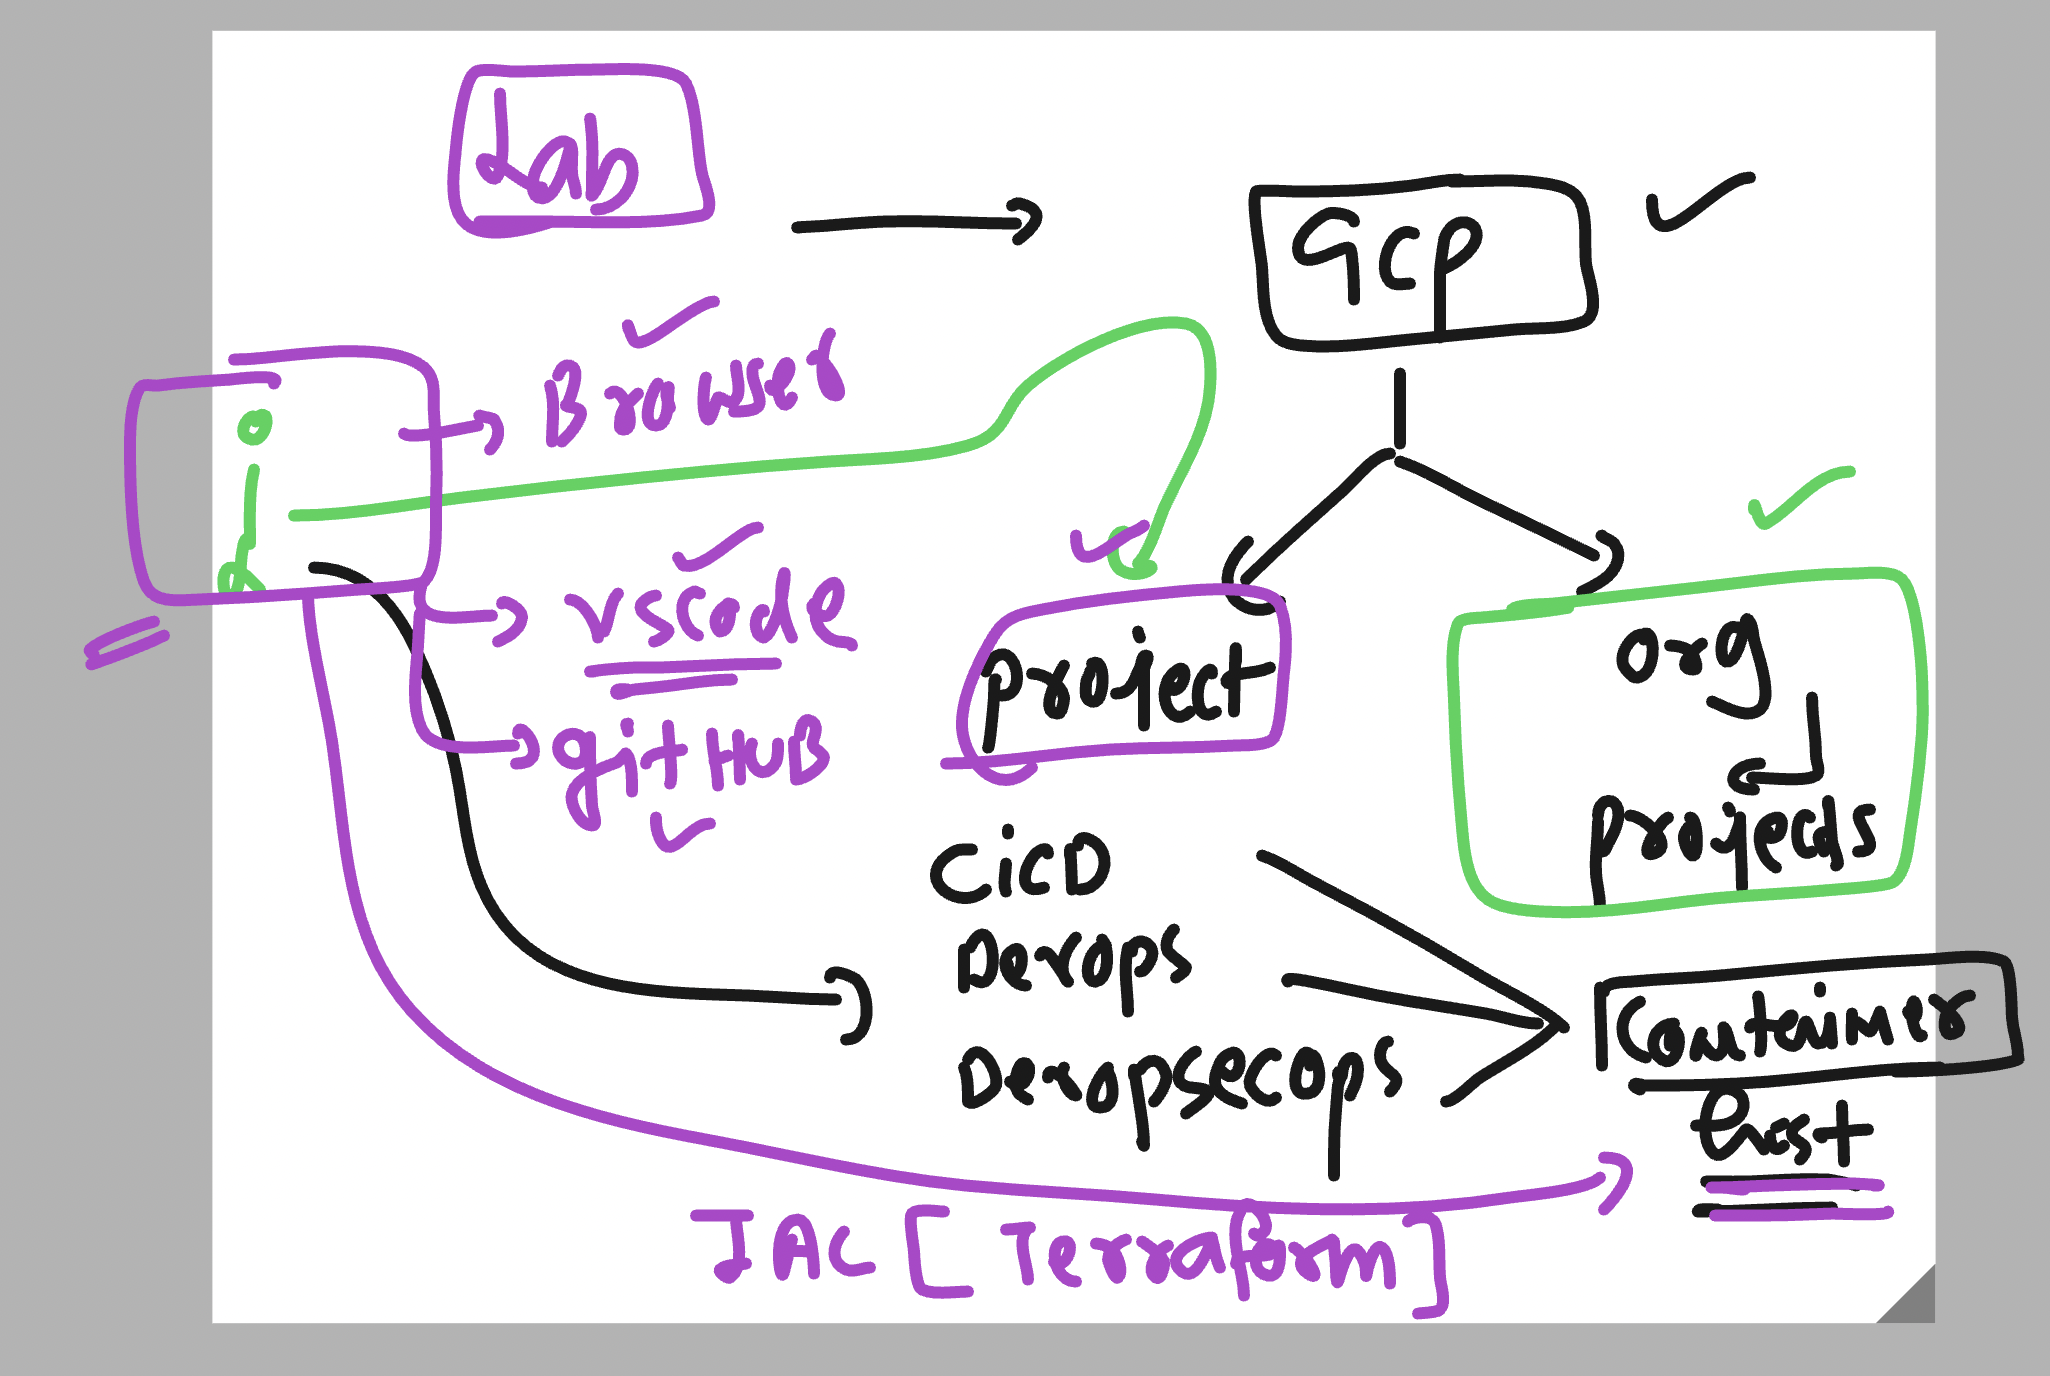 Lab
GCP
Browser
vscode
gitHUB
project
org
projects
CiCD
Devops
Devopsecops
Container
IAC [Terraform]